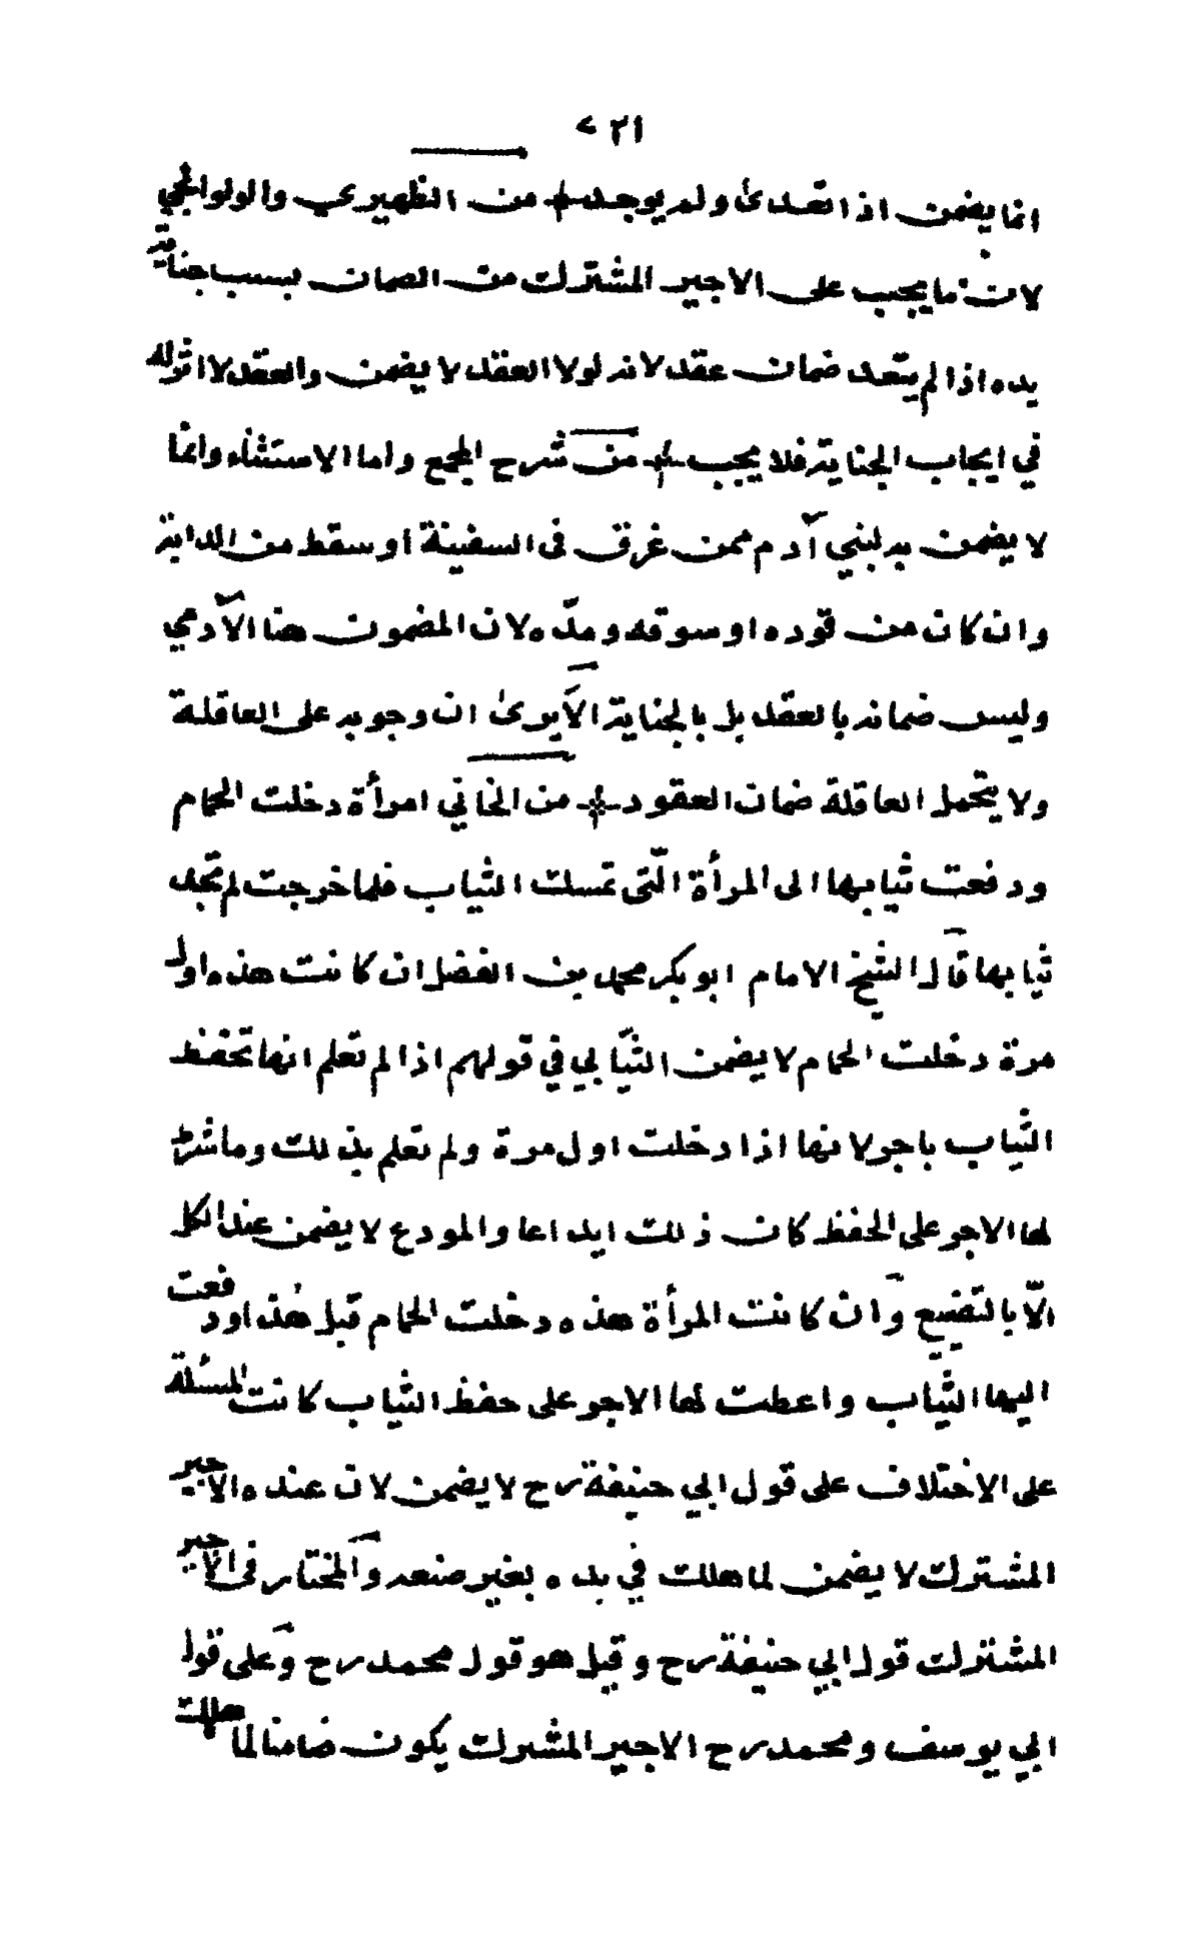 انما يضمن اذا تعدى ولم يوجد من الظهيري والولوالجي
لان ما يجب على الاجير المشترك من الضمان بسبب جناية
يده اذا لم يتعد ضمان عقد لانه لولا العقد لا يضمن والعقد لا اثر له
في ايجاب الجناية فلا يجب من شرح المجمع واما الاستثناء وانما
لا يضمن به لبني آدم ممن غرق فى السفينة او سقط من الدابة
وان كان من قوده او سوقه ومدّه لان المضمون هنا الآدمي
وليس ضمانه بالعقد بل بالجناية الا يرى ان وجوبه على العاقلة
ولا يتحمل العاقلة ضمان العقود من الخاني امرأة دخلت الحمام
ودفعت ثيابها الى المرأة الّتى تمسك الثياب فلما خرجت لم تجد
ثيابها قال الشيخ الامام ابو بكر محمد بن الفضل ان كانت هذه اول
مرة دخلت الحمام لا يضمن الثيابي في قولهم اذا لم تعلم انها تحفظ
الثياب باجر لانها اذا دخلت اول مرة ولم تعلم بذلك وما شرط
لها الاجر على الحفظ كان ذلك ايداعا والمودع لا يضمن عند الكل
الّا بالتضييع وان كانت المرأة هذه دخلت الحمام قبل هذه او دفعت
اليها الثياب واعطت لها الاجر على حفظ الثياب كانت المسئلة
على الاختلاف على قول ابي حنيفة رح لا يضمن لان عنده الاجير
المشترك لا يضمن لما هلك في يده بغير صنعه والمختار فى الاجير
المشترك قول ابي حنيفة رح وقيل هو قول محمد رح وعلى قول
ابي يوسف ومحمد رح الاجير المشترك يكون ضامنا لما هلك